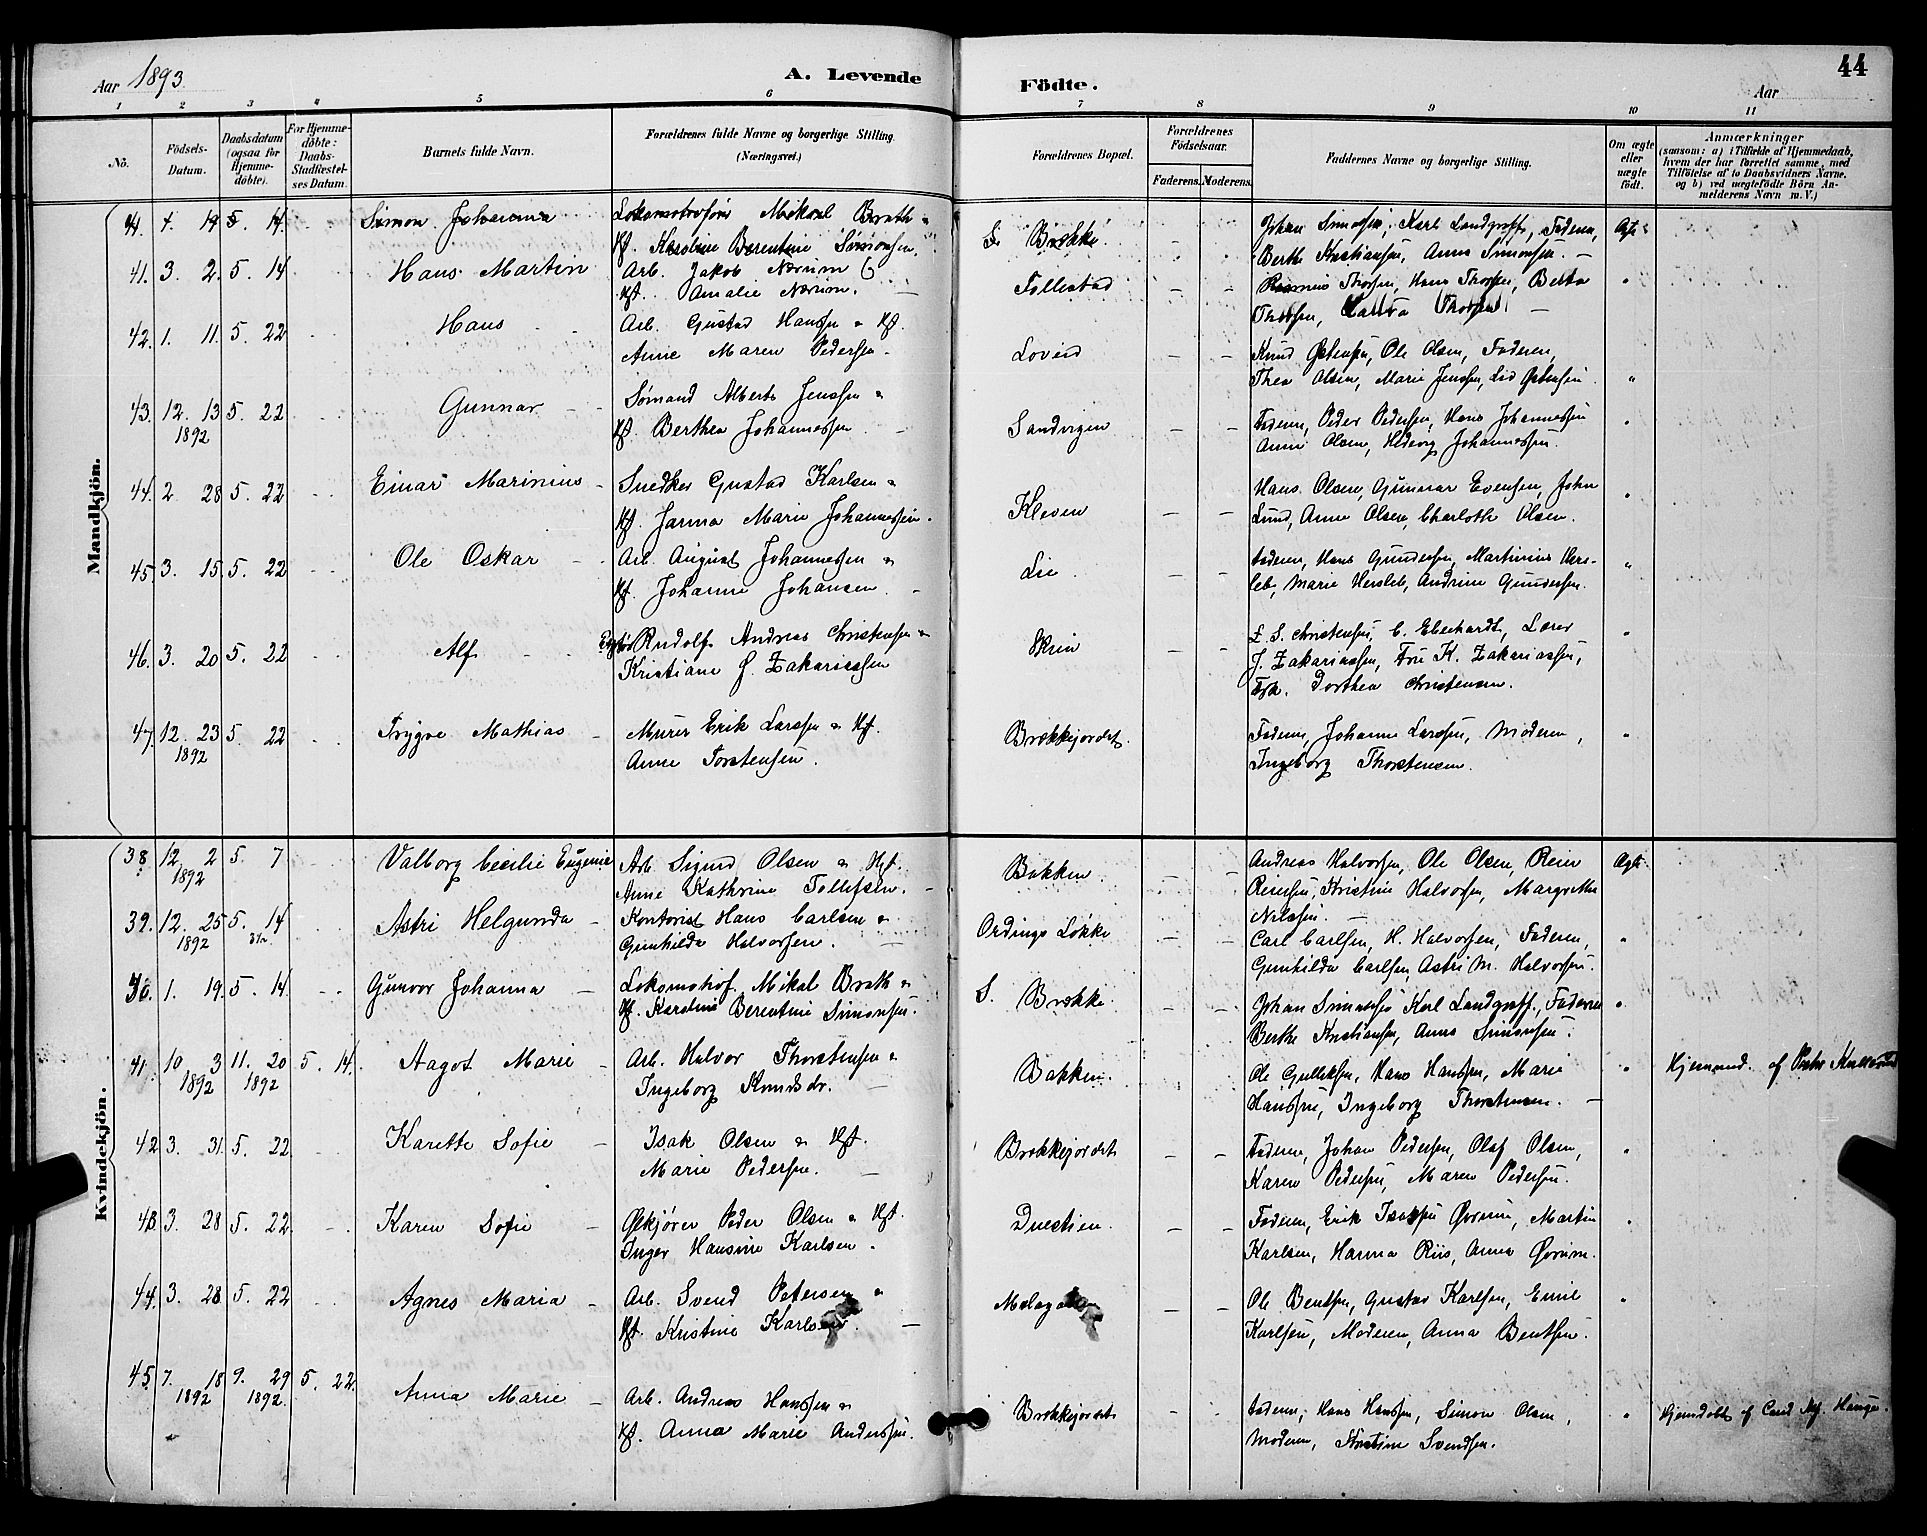 44
Aar 1893.
A. Levende Födte.
Aar
1 2 3 4 5 6 7 8 9 10 11
No.
Födsels-Datum.
Daabsdatum (ogsaa for Hjemme-döbte).
For Hjemme-döbte: Daabs-Stadfæstel-ses Datum.
Barnets fulde Navn.
Forældrenes fulde Navne og borgerlige Stilling. (Næringsvei.)
Forældrenes Bopæl.
Forældrenes Födselsaar.
Faderens. Moderens.
Faddernes Navne og borgerlige Stilling.
Om ægte eller uægte födt.
Anmærkninger
(saasom: a) i Tilfælde af Hjemmedaab, hvem der har forrettet samme, med Tilföielse af to Daabsvidners Navne. og b) ved uægtefödte Börn An-melderens Navn m. V.)
Mandkjön.
19 5. 14. Simon Johanna Mikael Brath
Kf. Karoline Berentine Simonsen. S. Brække.
Johan Simonsen, Karl Landgraff, Faderen,
Berthe Kristiansen, Anna Simonsen. —
41. 3. 2. 5. 14 Hans Martin Arb. Jakob Nærum
Kf. Amalie Nærum. Follestad
Thorsen, Hans Thorsen, Berta
Thorsen, Thorsen. —
42. 1. 11. 5. 22 Hans Arb. Gustad Hansen & Kf.
Anne Maren Pedersen. Lovend
Knud Østensen, Ole Olsen, Faderen,
Thea Olsen, Marie Jenssen, Østensen.
43. 12. 13 5. 22 Gunnar Sømand Alberts Jenssen &
1892 Kf. Berthea Johannessen Sandvigen
Faderen, Peder Pedersen, Hans Johannessen
Anne Olsen, Hedevig Johannessen.
44. 2. 28 5. 22 Einar Marinius Snedker Gustad Karlsen &
Kf. Jarma Marie Johannessen. Kleven
Hans Olsen, Gunnar Evensen, John
Lund, Anne Olsen, Charlothe Olsen.
45. 3. 15. 5. 22 Ole Oskar Arb. August Johannessen &
Kf. Johanne Johansen. Lie.
Faderen, Hans Gundersen, Martinius Hers-
leb, Marie Hersleb, Andrine Gundersen.
46. 3. 20 5. 22 Alf Rudolf Andreas Christensen &
Kristiane G. Zakariassen Skien
L. S. Christensen, C. Eberhardt, Lærer
J. Zakariassen, Fru K. Zakariassen,
Frk. Dorthea Christensen.
47. 12. 23 5. 22 Trygve Mathias Murer Erik Larssen & Kf.
1892 Anne Torstensen. Brækkejordet.
Faderen, Johanne Larssen, Moderen,
Ingeborg Thorstensen.
Kvindekjön.
38. 12. 2 5. 7 Valborg Cecilie Eugenie Arb. Sigurd Olsen & Kf.
1892 Anne Kathrine Tollefsen. Bakken.
Andreas Halvorsen, Ole Olsen, Rein Ægte
Reiersen, Kristine Halvorsen, Margrethe
Nilssen. —
39. 12. 25 5. 14 Astri Helgunda Kontorist Hans Carlsen &
1892 Gunhilda Halvorsen. Ordings Løkke
Carl Carlsen, H. Halvorsen, Faderen,
Gunhilda Carlsen, Astri M. Halvorsen.
1. 19. 5. 14. Gunvor Johanna Lokomotivf. Mikal Brath &
Kf. Karoline Berentine Simonsen. S. Brække.
Johan Simonsen, Karl Landgraff, Faderen
Berthe Kristiansen, Anna Simonsen.
41. 10 3 11. 20 5. 14. Aagot Marie Arb. Halvor Thorstensen &
1892 1892 Ingeborg Knudsdr. Bakken.
Ole Gulliksen, Hans Hanssen, Marie
Hanssen, Ingeborg Thorstensen. —
Hjemmed. af
42 3. 31. 5. 22 Karette Sofie Isak Olsen & Kf.
Marie Pedersen. Brækkejordet
Faderen, Johan Pedersen, Olaf Olsen,
Karen Pedersen, Maren Pedersen.
43 3. 28 5. 22 Karen Sofie Peder Olsen & Kf.
Inger Hansine Karlsen.
Faderen, Erik Isaksen Ørum, Martin
Karlsen, Hanna Riis, Anna Ørum.
44. 3. 28 5. 22 Agnes Maria Arb. Svend Petersen &
Kf. Kristine Karlsen.
Ole Bentsen, Gustav Karlsen, Emil
Karlsen, Moderen, Anna Bentsen.
45. 7. 18 9. 29 5. 22. Anna Marie Arb. Andreas Hanssen &
1892 1892. Kf. Anna Marie Anderssen. Brækkejordet
Faderen, Hans Hanssen, Simon Olsen,
Moderen, Kristine Svendsen.
Hjemdøbt af Hauge.